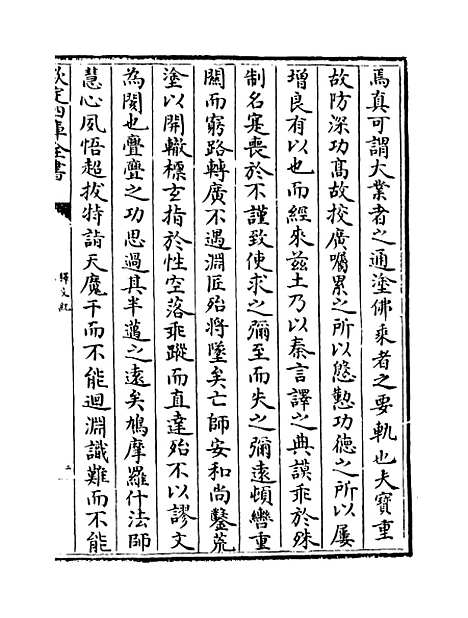 焉真可謂大業者之通塗佛乘者之要軌也夫寶重
故防深功髙故挍廣囑累之所以慇懃功德之所以屢
增良有以也而經來兹土乃以秦言譯之典謨乖於殊
制名寔喪於不謹致使求之彌至而失之彌遠頓轡重
闗而窮路轉廣不遇淵匠殆將墜矣亡師安和尚鑿荒
塗以開轍標玄指於性空落乖蹤而直達殆不以謬文
為閡也亹亹之功思過其半邁之逺矣鳩摩羅什法師
慧心夙悟超拔特詣天魔干而不能迴淵識難而不能
欽定四庫全書
釋文紀